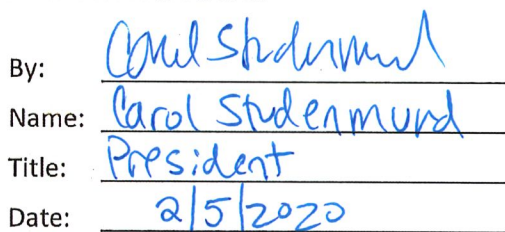 By: Carol Studenmund
Name: Carol Studenmund
Title: President
Date: 2/5/2020